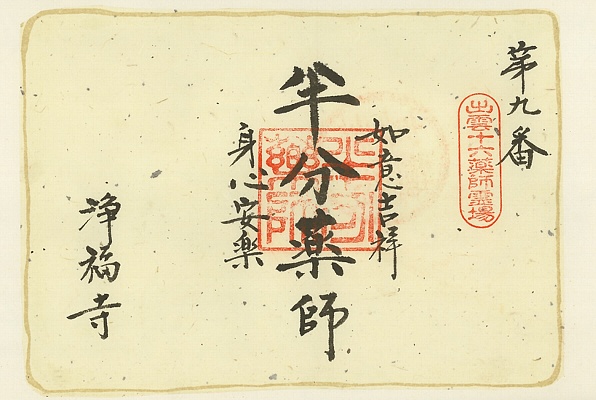 第九番
出雲十六薬師霊場
如意吉祥
半分薬師
身心安楽
浄福寺